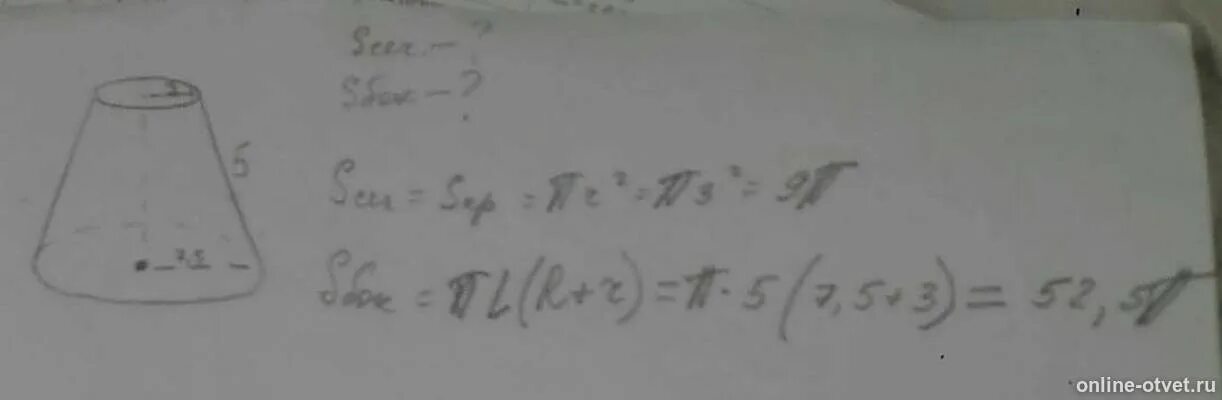 Sсеч - ?
Sбок - ?
5
7,5
Sсеч = Sкр = πr² = π3² = 9π
Sбок = πL(R+r) = π·5(7,5+3) = 52,5π
online-otvet.ru